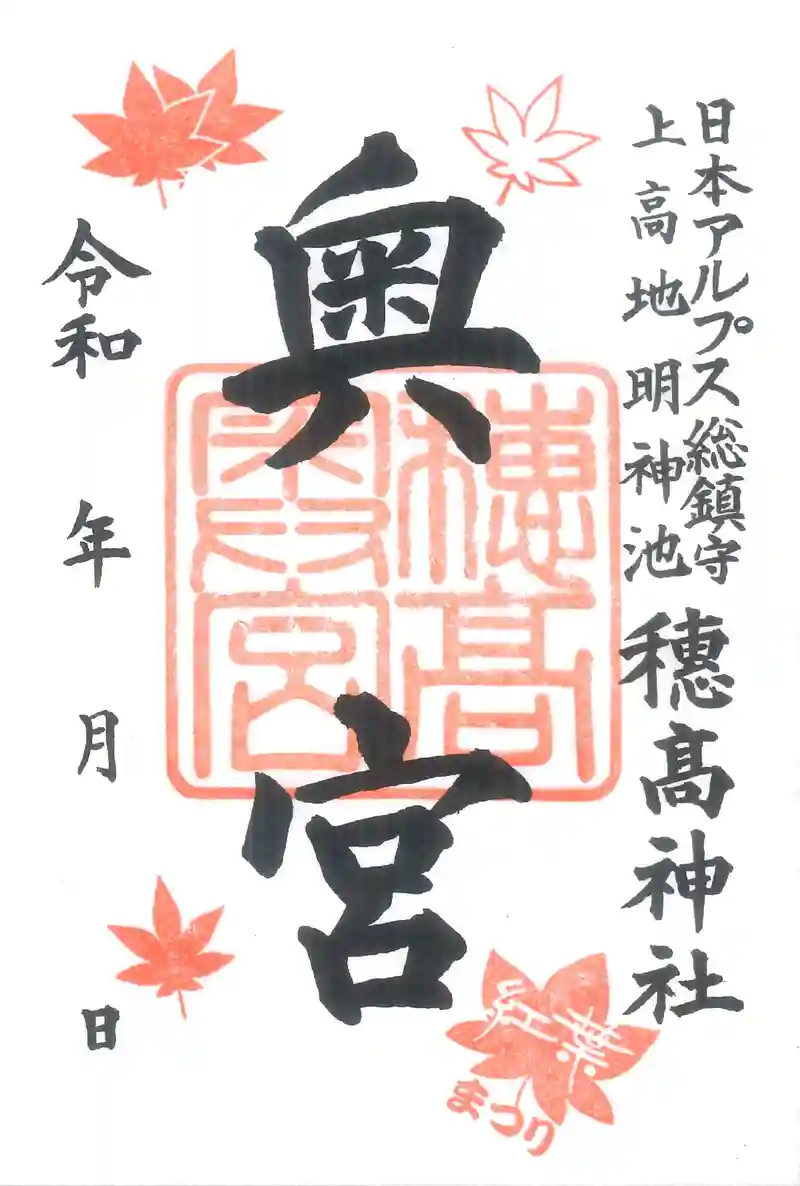 日本アルプス総鎮守
上高地明神池
穂髙神社
奥宮
穂髙
奥宮
令和 年 月 日
紅葉
まつり